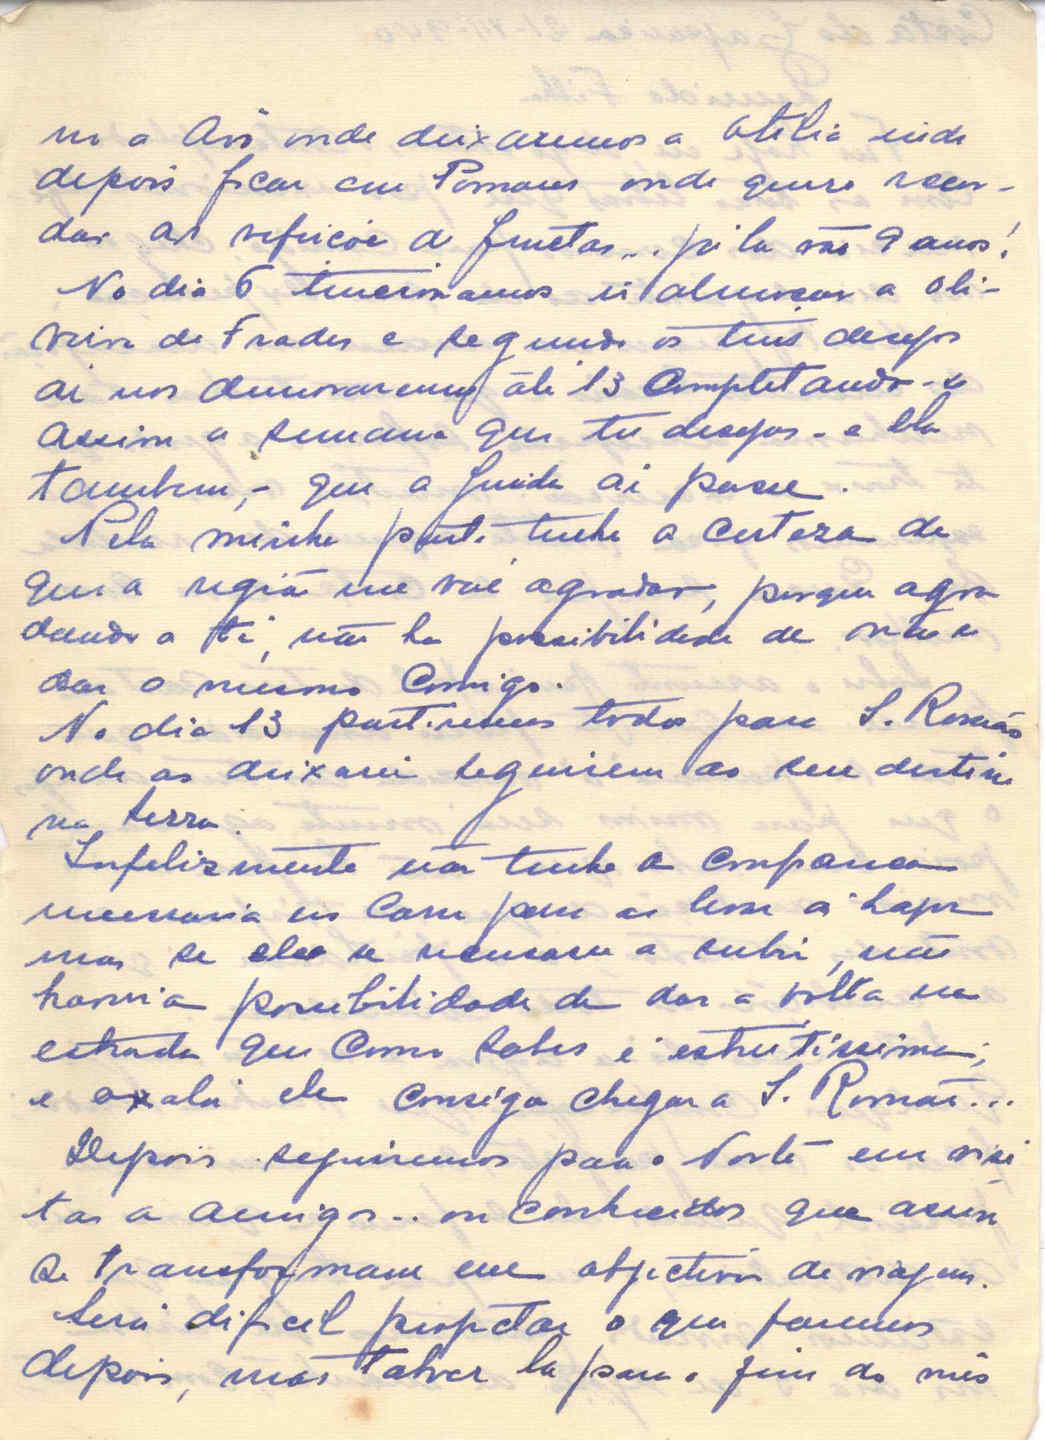 mo a Avô onde deixaremos a Otilia indo
depois ficar em Pomares onde quero recor-
dar as refeições de fructas... já lá vão 9 anos!
No dia 6 tencionamos ir almoçar a Oli-
veira de Frades e segundo os teus desejos
ai nos demoraremos áté 13 completando-se
assim a semana que tu desejas - e ela
tambem, - que a Guida ai passe.
Pela minha parte tenho a certeza de
que a região me vai agradar, porque agra
dando a ti, não ha possibilidade de não se
dar o mesmo comigo.
No dia 13 partiremos todos para S. Romão
onde as deixarei seguirem ao seu destino
na serra.
Infelizmente não tenho a confiança
necessaria no carro para as levar á Lagoa
mas se ele se recusasse a subir, não
haveria possibilidade de dar a volta na
estrada que como sabes é estreitissima;
e oxalá ele consiga chegar a S. Romão...
Depois seguiremos para o Norte em visi
tas a amigos... ou conhecidos que assim
se transformam em objectivos de viagem.
Será dificil projectar o que faremos
depois, mas talvez lá para o fim do mês